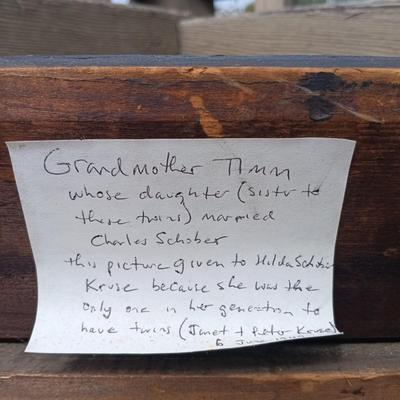 Grandmother Timm
whose daughter (sister to
these twins) married
Charles Schober
this picture given to Hilda Schober
Kruse because she was the
only one in her generation to
have twins (Janet + Peter Kruse)
6 June